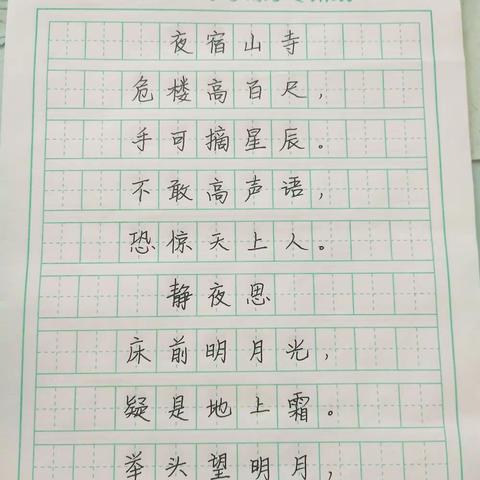 夜宿山寺
危楼高百尺，
手可摘星辰。
不敢高声语，
恐惊天上人。
静夜思
床前明月光，
疑是地上霜。
举头望明月，